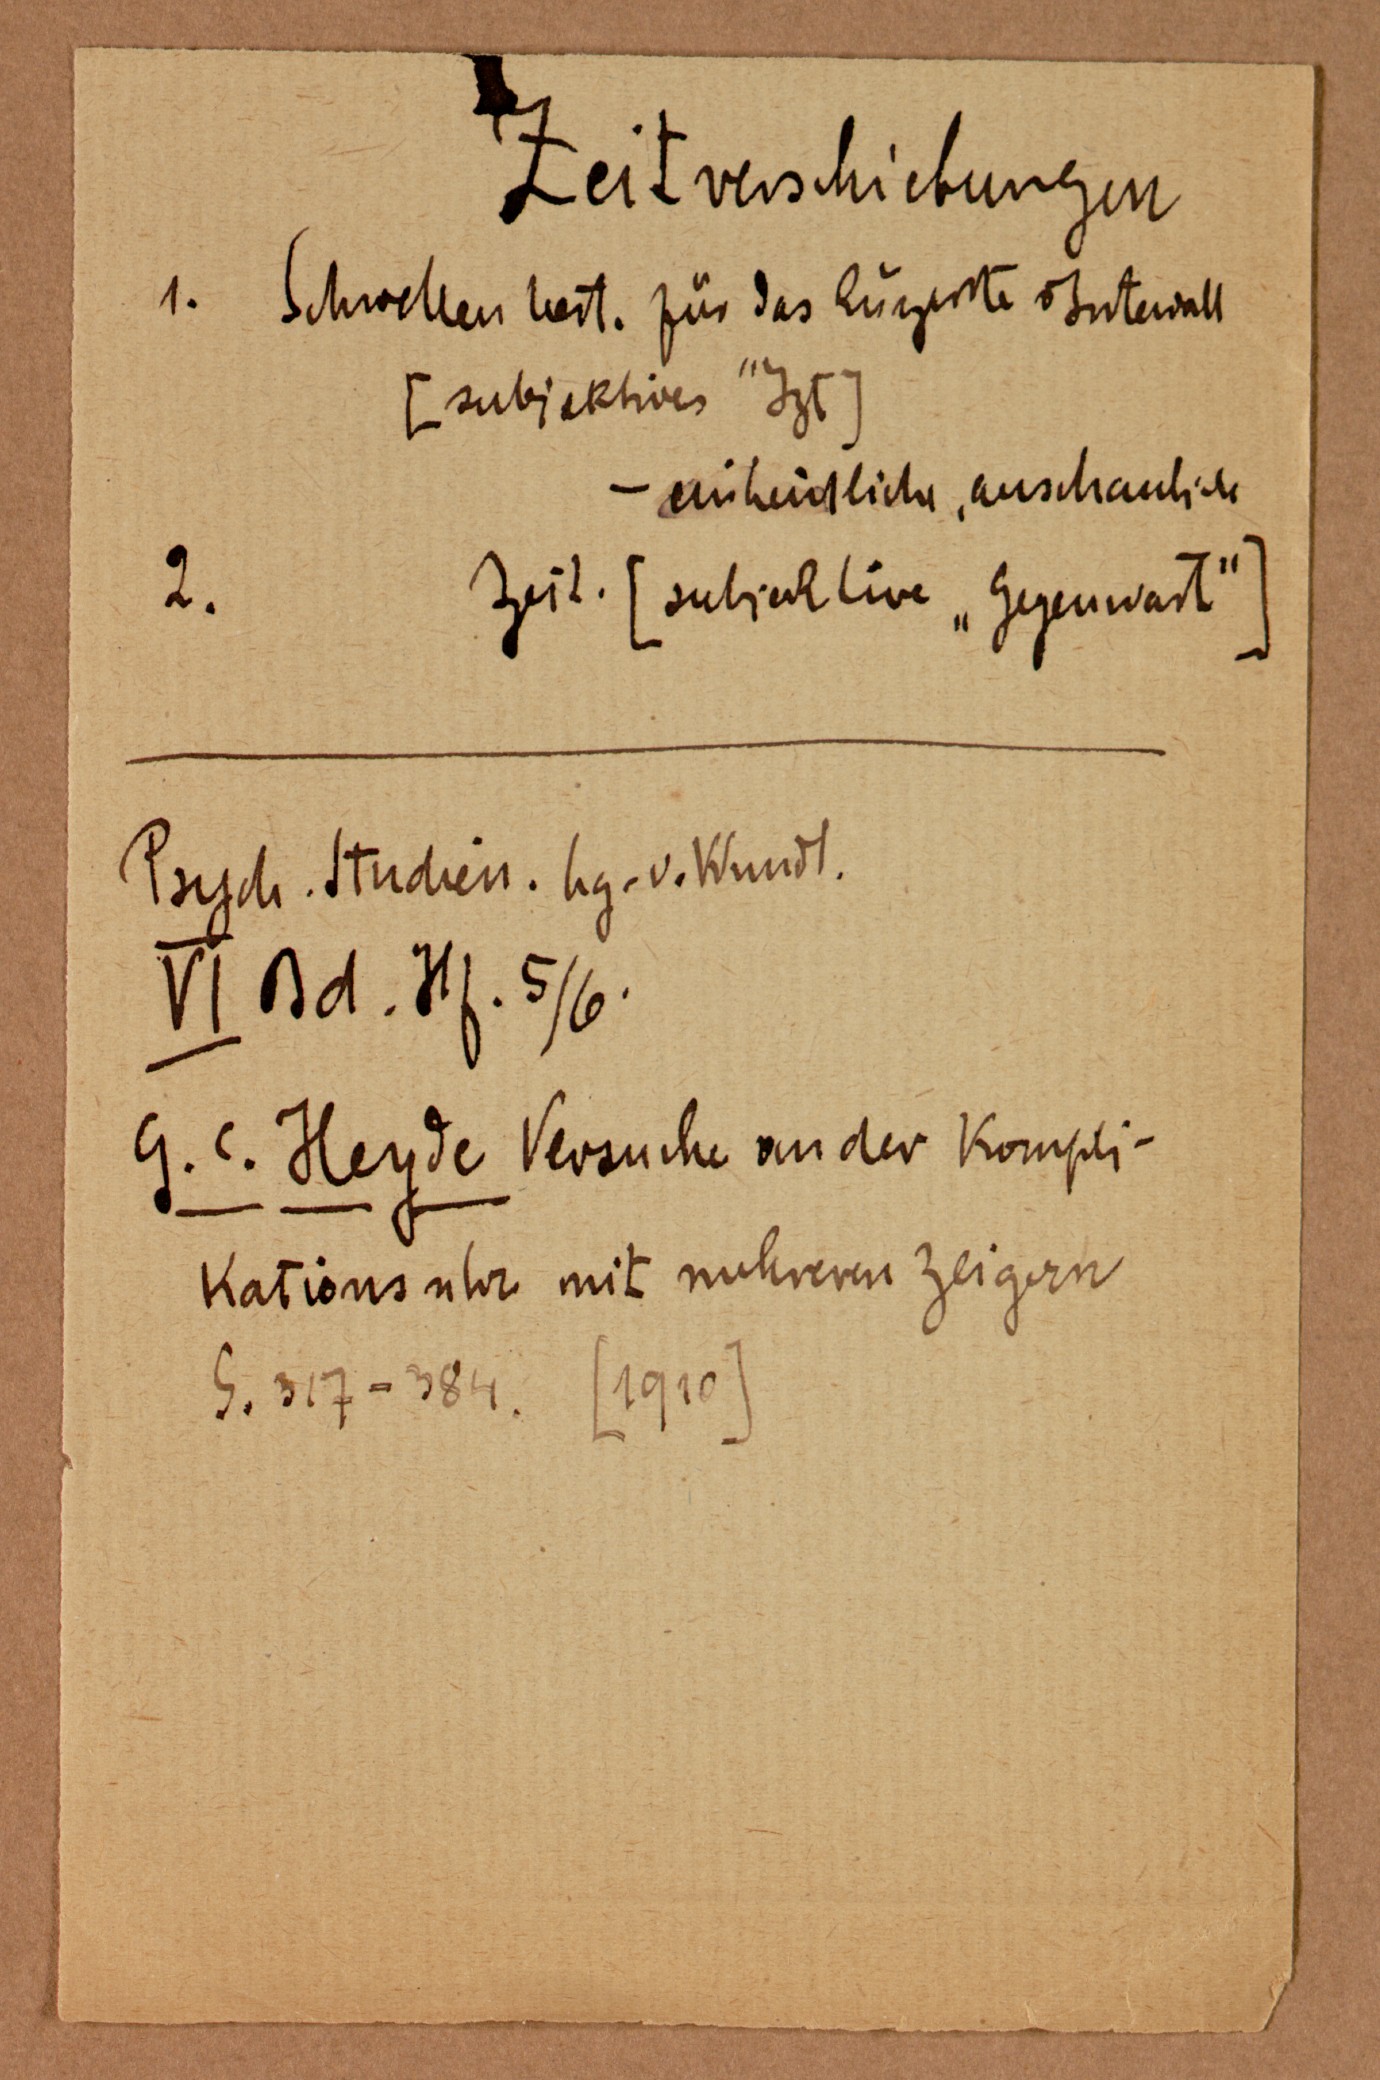 Zeitverschiebungen
1. Schwellen best. für das kürzeste Intervall
[subjektives "Jzt]
– einheitliche, anschauliche
2. Zeit. [subjektive „Gegenwart"]
Psych. Studien. hg. v. Wundt.
VI Bd. Hf. 5/6.
G. C. Heyde Versuche an der Kompli-
kationsuhr mit mehreren Zeigern
S. 317-384. [1910]